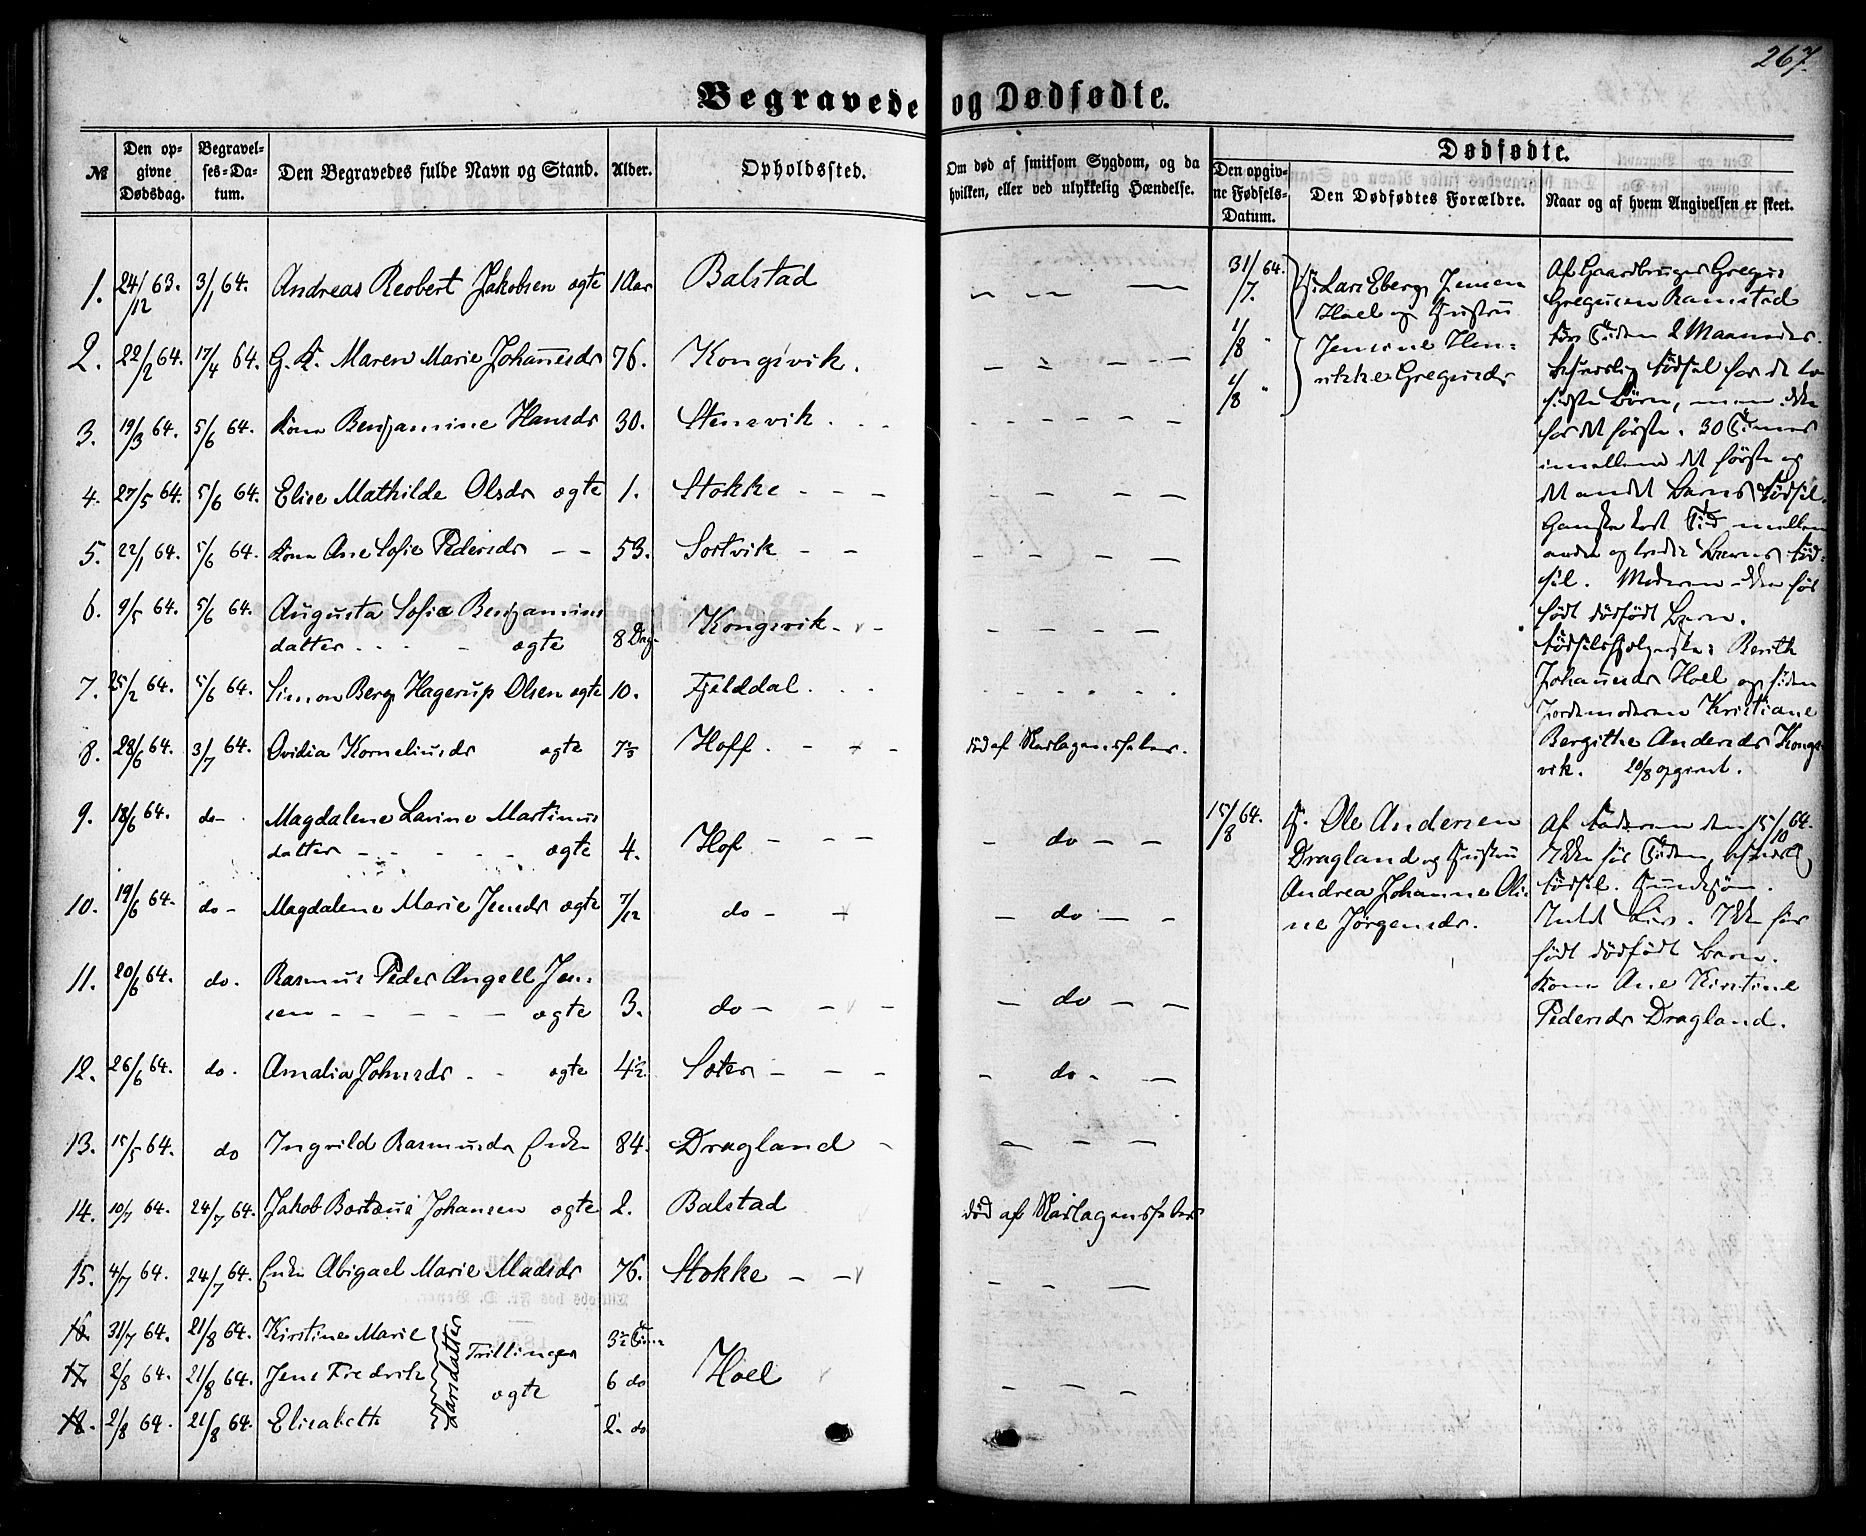 267.
Begravede og Dødfødte.
№
Den opgivne Dødsdag.
Begravelses-Datum.
Den Begravedes fulde Navn og Stand.
Alder.
Opholdssted.
Om død af smitsom Sygdom, og da hvilken, eller ved ulykkelig Hændelse.
Dødfødte.
Den opgivne Fødsels-Datum.
Den Dødfødtes Forældre.
Naar og af hvem Angivelsen er skeet.
1. 24/12 63. 3/1 64. Andreas Reobert Jakobsen ægte 1 Aar Balstad
2. 22/2 64. 17/4 64. G. K. Maren Marie Johannesdr 76. Kongsvik.
3. 19/3 64. 5/6 64. Kone Benjamine Hansdr 30. Stensvik
4. 27/5 64. 5/6 64. Elise Mathilde Olsdr ægte 1. Stokke
5. 22/1 64. 5/6 64. Kone Ane Sofie Pedersdr 53. Sortvik
6. 9/5 64. 5/6 64. Augusta Sofie Benjamins
datter ægte 8 Dag. Kongsvik
7. 25/2 64. 5/6 64. Simon Berg Hagerup Olsen ægte 10. Fjelddal
8. 28/6 64. 3/7 64. Ovidia Korneliusdr ægte 7½ Hoff. død af Skarlagensfeber.
9. 18/6 64. do Magdalene Lavine Martinus
datter ægte 4. Hof do
10. 19/6 64. do Magdalene Marie Jensdr ægte 7/12 do do
11. 20/6 64. do. Rasmus Peder Angell Jen-
sen ægte 3. do do
12. 26/6 64. do. Amalia Johnsdr ægte 4½ Sæter do
13. 15/5 64. do Ingvild Rasmusdr Enke 84. Dragland
14. 10/7 64. 24/7 64. Jakob Johansen ægte 2. Balstad død af Skarlagensfeber
15. 4/7 64. 24/7 64. Enke Abigael Marie Madsdr 76. Stokke
16. 31/7 64. 21/8 64. Kirstine Marie 3½ Timer
17. 2/8 64. 21/8 64. Jens Fredrik Larsdatter Trillinger ægte 6 do Hoel
18. 2/8 64. 21/8 64. Elisabeth 2 do
31/7 64.
1/8 "
1/8 "
F. Lars Eberg Jensen
Hoel og Hustru
Jensine Hen-
rikke Gregusdr
Af Gaardbruger Gregus
Gregusen Ramstad
før Tiden 2 Maaneder.
Fødsel for de to
sidste Børn, men ikke
for det første. 30 Timer
imellem det første og
det andet Barns Fødsel.
Ganske kort Tid mellem
andet og tredie Barns Fød-
sel. Moderen ikke før
født dødfødt Barn.
Fødselshjælperske: Berith
Johannesdr Hoel og siden
Jordemoderen Kristiane
Bergithe Andersdr Kongs-
vik. 20/8 opgivet.
15/8 64.
F. Ole Andersen
Dragland og Hustru
Andrea Johanne Oli-
ne Jørgensdr.
Af Faderen den 15/10 64.
Ikke før Tiden,
Fødsel.
Ikke før
født dødfødt Barn.
Kone Ane Kirstine
Pedersdr Dragland.